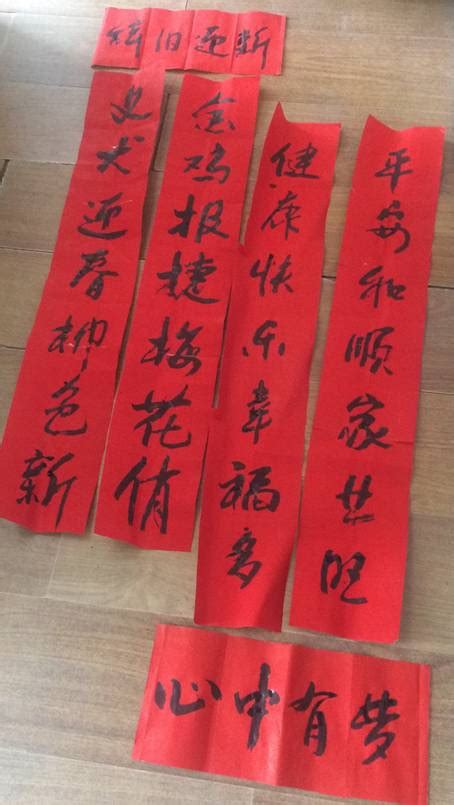 辞旧迎新
金鸡报捷梅花俏
义犬迎春柳色新
平安和顺家兴旺
健康快乐幸福多
心中有梦